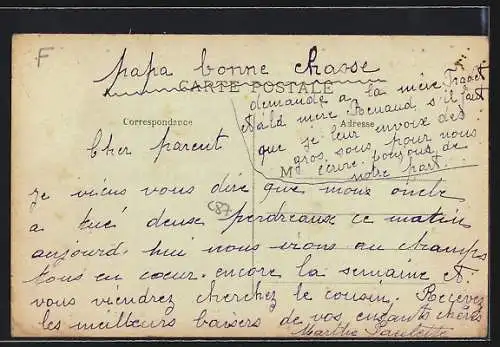 F
papa bonne chasse
CARTE POSTALE
Correspondance
Adresse
M
demande a la mère
et a la mère Renaud s'il faut
que je leur envoix des
gros sous pour nous
écrire
notre part
Cher parent
Je viens vous dire que mons oncle
a tué deuse perdreaux ce matin
aujourd. hui nous irons au champs
tous en cœur. encore la semaine et
vous viendrez cherchez le cousin. Recevez
les meilleurs baisers de vos enfants cheris
Marthe Paulette
C87